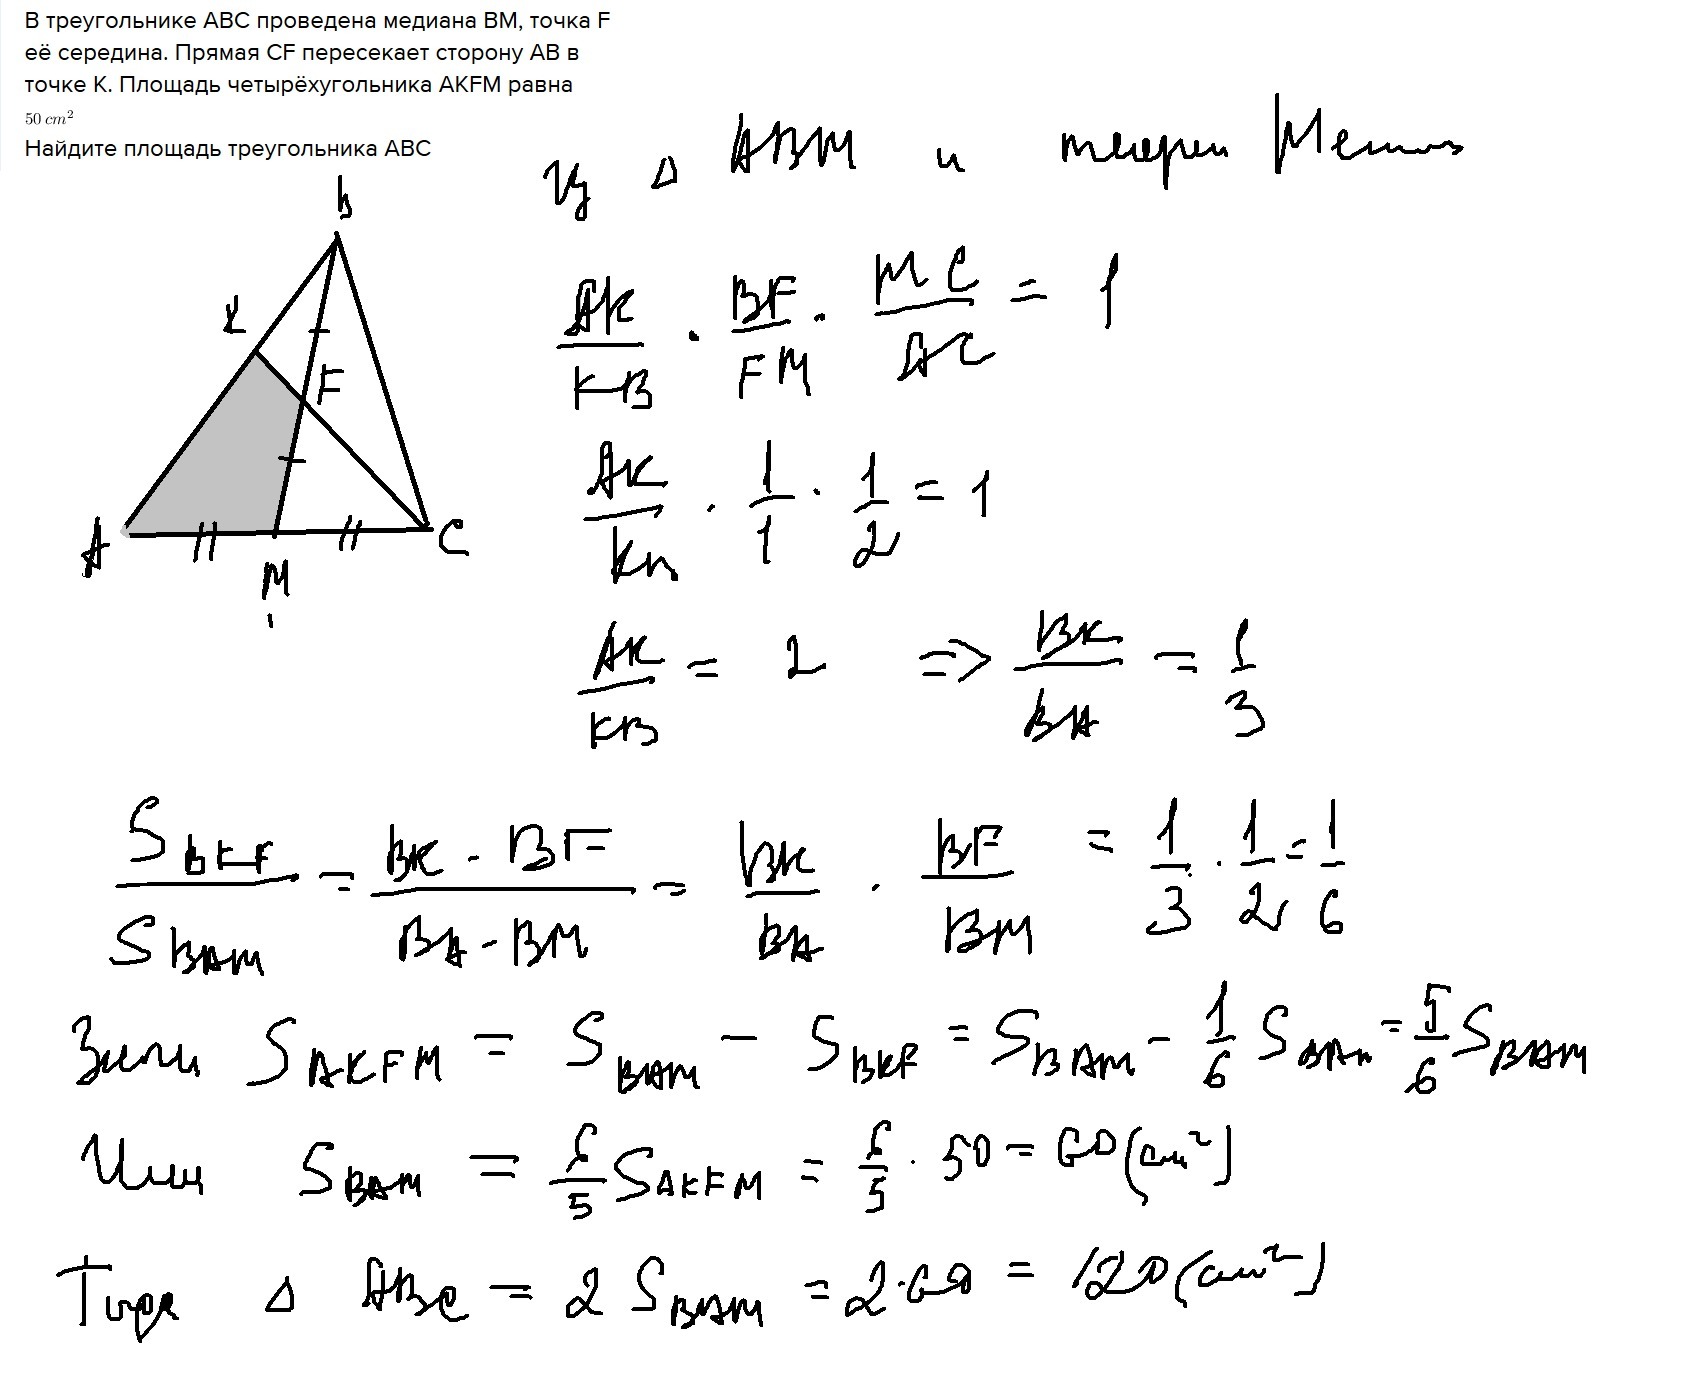 В треугольнике ABC проведена медиана BM, точка F
её середина. Прямая CF пересекает сторону AB в
точке K. Площадь четырёхугольника AKFM равна
50 cm²
Найдите площадь треугольника ABC
Из Δ ABM и теорем Мен
B
K
F
A
M
C
AK/KB · BF/FM · MC/AC = 1
AK/KB · 1/1 · 1/2 = 1
AK/KB = 2 => BK/BA = 1/3
S BKF / S BAM = BK · BF / BA · BM = BK/BA · BF/BM = 1/3 · 1/2 = 1/6
Значит S AKFM = S BAM - S BKF = S BAM - 1/6 S BAM = 5/6 S BAM
Или S BAM = 6/5 S AKFM = 6/5 · 50 = 60 (см²)
Тогда Δ ABC = 2 S BAM = 2·60 = 120 (см²)